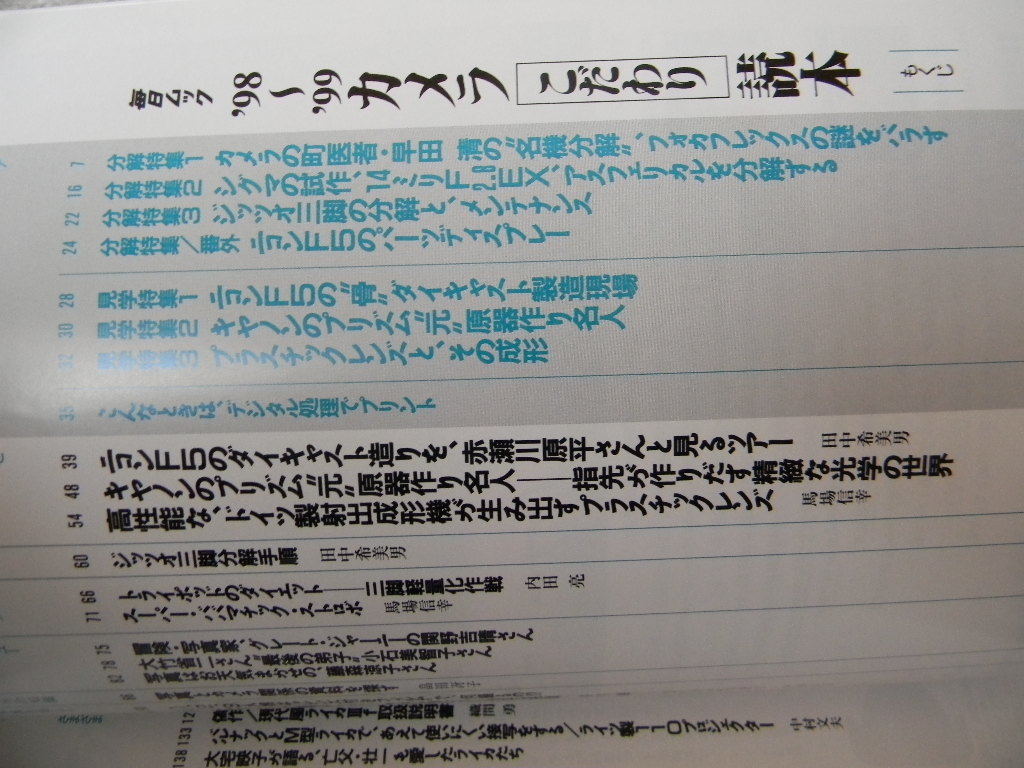 毎日ムック
'98〜'99 カメラ こだわり 読本
もくじ
7 分解特集1 カメラの町医者・早田 清の“名機分解”、フォカフレックスの謎を、バラす
16 分解特集2 シグマの試作、14ミリF2.8EX、アスフェリカルを分解する
22 分解特集3 ジッツオ三脚の分解と、メンテナンス
24 分解特集／番外 ニコンF5のパーツディスプレー
28 見学特集1 ニコンF5の“骨”ダイキャスト製造現場
30 見学特集2 キヤノンのプリズム“元”原器作り名人
32 見学特集3 プラスチックレンズと、その成形
35 こんなときは、デジタル処理でプリント
39 ニコンF5のダイキャスト造りを、赤瀬川原平さんと見るツアー 田中希美男
48 キヤノンのプリズム“元”原器作り名人——指先が作りだす精緻な光学の世界
54 高性能な、ドイツ製射出成形機が生み出すプラスチックレンズ 馬場信幸
60 ジッツオ三脚分解手順 田中希美男
66 トライポッドのダイエット——三脚軽量化作戦 内田 亮
71 スーパー・パパマチック・ストロボ 馬場信幸
75 冒険・写真家、グレート・ジャーニーの関野吉晴さん
78 大竹省二さん“最後の弟子”小石美智子さん
82 写真はお天気まかせの、藤森涼子さん
さまざま
12 傑作／現代風ライカⅢf取扱説明書 織間 勇
133 バルナックとM型ライカで、あえて使いにくい接写をする／ライツ製110プロジェクター 中村文夫
138 大宅映子が語る、亡父・壮一も愛したライカたち